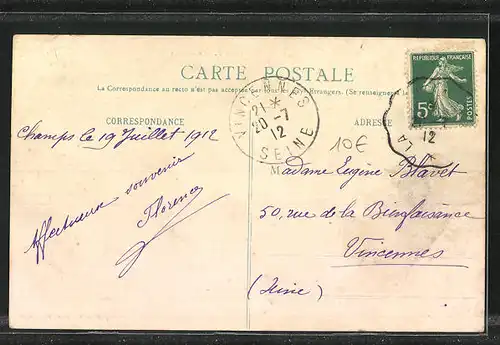 CARTE POSTALE
REPUBLIQUE FRANÇAISE
5c
POSTES
La Correspondance au recto n'est pas acceptée par tous les Pays Etrangers. (Se renseigner
CORRESPONDANCE
ADRESSE
VINCENNES
21*
20-7
12
SEINE
12
LA
10€
Champs le 19 Juillet 1912
Affectueux souvenir
Florence
M
Madame Eugène Blavet
50, rue de la Bienfaisance
Vincennes
(Seine)